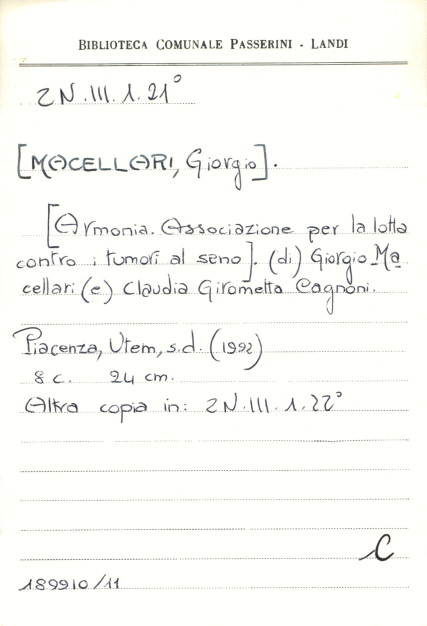 BIBLIOTECA COMUNALE PASSERINI - LANDI
2N.III.1.21°
[MACELLARI, Giorgio].
[Armonia. Associazione per la lotta
contro i tumori al seno]. (di) Giorgio Ma
cellari (e) Claudia Girometta Cagnoni.
Piacenza, Utem, s.d. (1992)
8 c. 24 cm.
Altra copia in: 2N.III.1.22°
C
189910/11